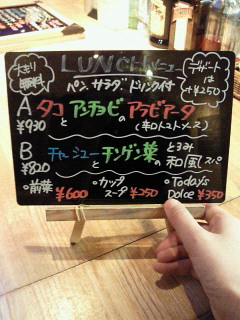 大盛り
無料
LUNCHメニュー
パン、サラダ、ドリンク付
デザート
は
+¥250
A タコ と アンチョビ の アラビアータ
¥930 (辛口トマトソース)
B チャーシュー と チンゲン菜 の とろみ
¥820 和風スパ
・前菜 ¥600 ・カップ スープ ¥250 ・Today's Dolce ¥350